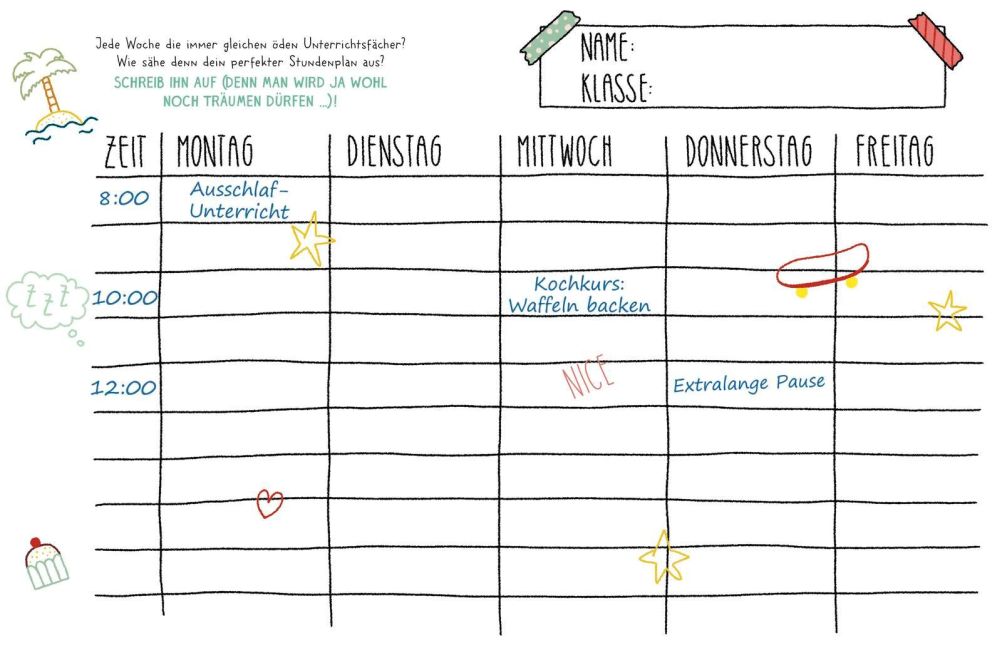 Jede Woche die immer gleichen öden Unterrichtsfächer?
Wie sähe denn dein perfekter Stundenplan aus?
SCHREIB IHN AUF (DENN MAN WIRD JA WOHL
NOCH TRÄUMEN DÜRFEN ...)!
NAME:
KLASSE:
ZEIT MONTAG DIENSTAG MITTWOCH DONNERSTAG FREITAG
8:00 Ausschlaf-
Unterricht
ZZZ
10:00 Kochkurs:
Waffeln backen
NICE
12:00 Extralange Pause